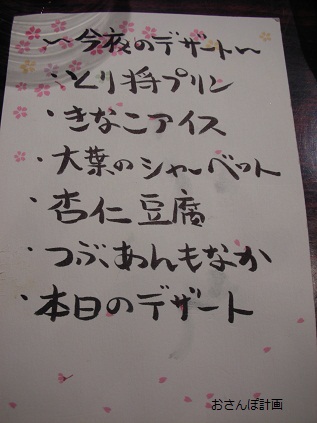 ～今夜のデザート～
・とり将プリン
・きなこアイス
・大葉のシャーベット
・杏仁豆腐
・つぶあんもなか
・本日のデザート
おさんぽ計画